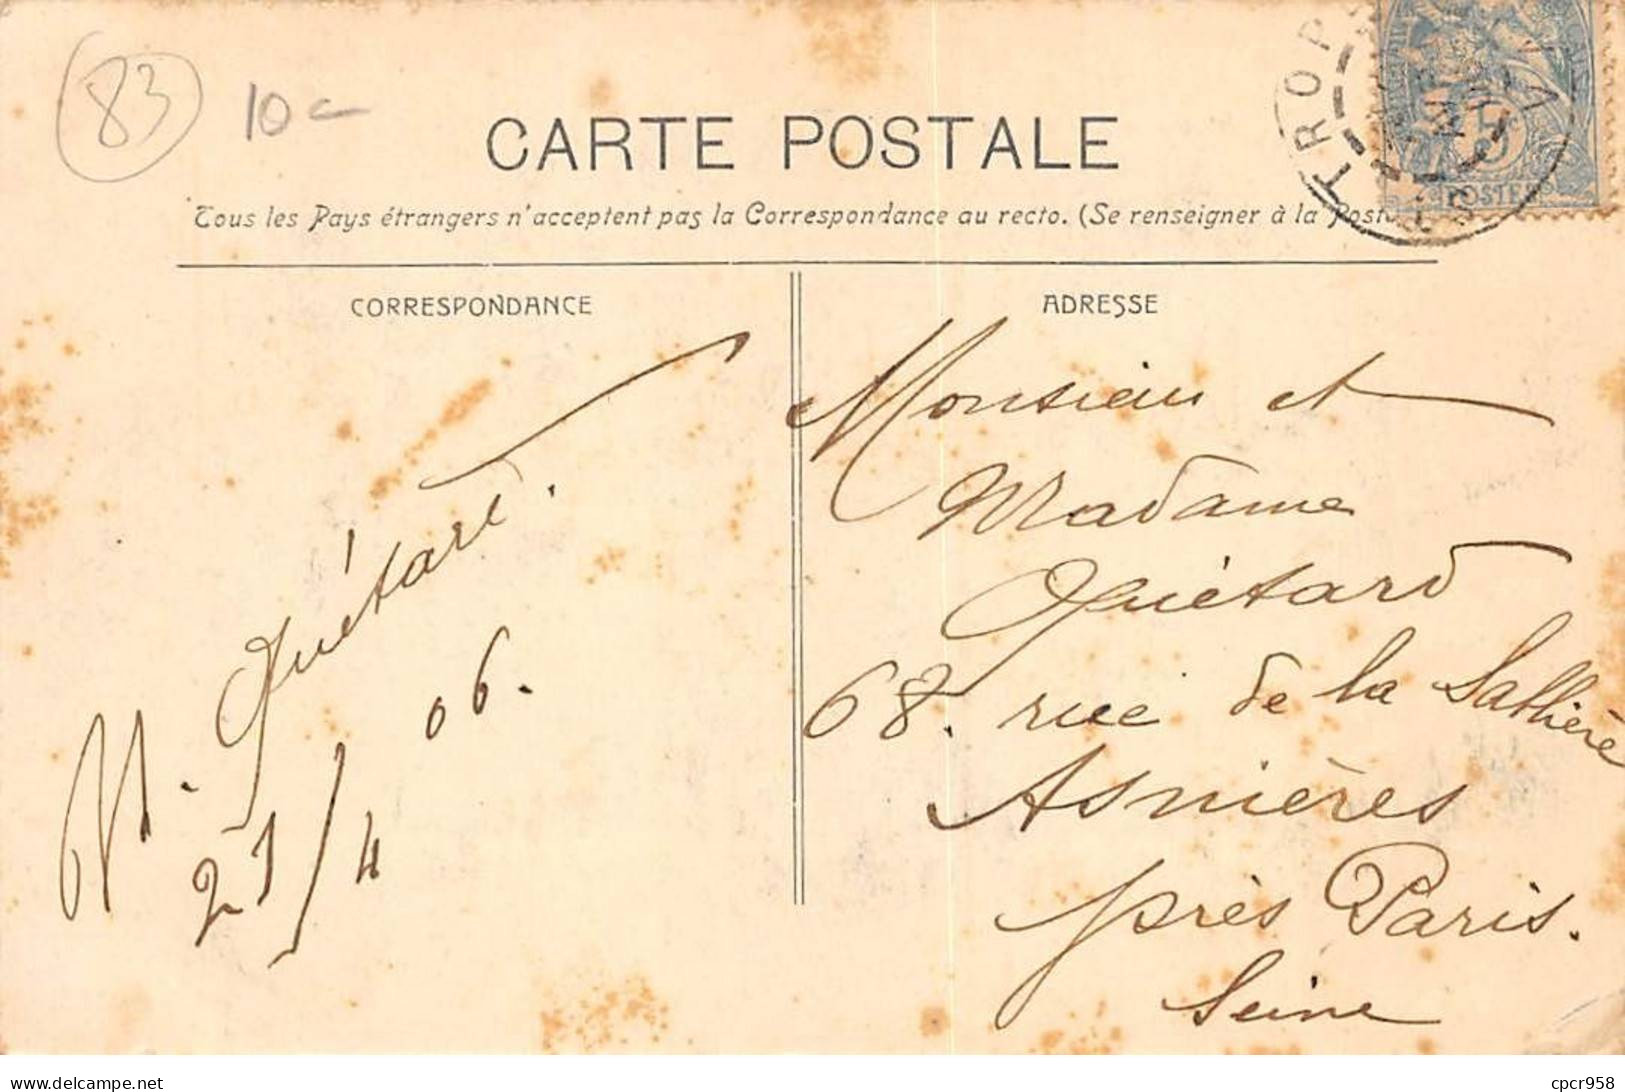 83
10
CARTE POSTALE
Tous les Pays étrangers n'acceptent pas la Correspondance au recto. (Se renseigner à la Poste
TROP
5
POSTES
CORRESPONDANCE
ADRESSE
M. Quétard.
21/4 06.
Monsieur et
Madame
Quétard
68. rue de la Sablière
Asnières
près Paris.
Seine
https://www.delcampe.net
cpcr958